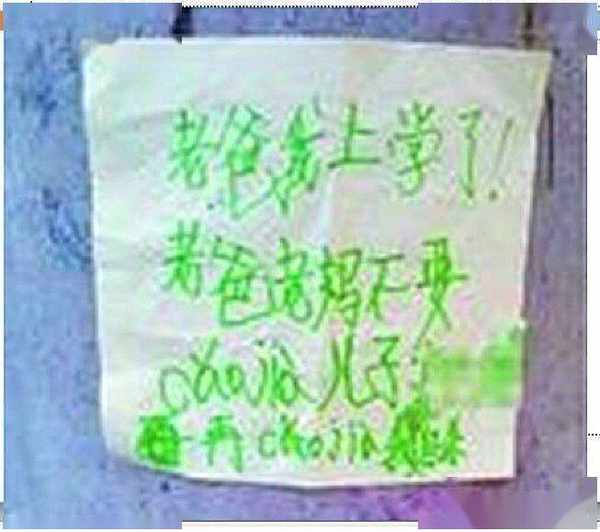 老爸我上学了!
老爸老妈不要
chaojia 儿子:
再 chaojia